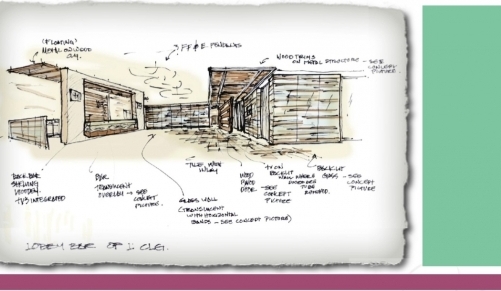 (FLOATING)
METAL OR WOOD
CLG.
FF&E PENDANTS
WOOD TRIMS
ON METAL STRUCTURE - SEE
CONCEPT
PICTURE.
BACK BAR
SHELVING
WOODEN
TV'S INTEGRATED
BAR
TRANSLUCENT
OVERLAY - SEE
CONCEPT
PICTURE.
GLASS WALL
(TRANSLUCENT
WITH HORIZONTAL
BANDS - SEE CONCEPT PICTURE)
TILE WITH
WOOD
DOOR
SEE
CONCEPT
PICTURE
BACKLIT
WALL WHERE
TO BE
BACKLIT
GLASS - SEE
CONCEPT
PICTURE
LOBBY BAR OP 1: CLG.